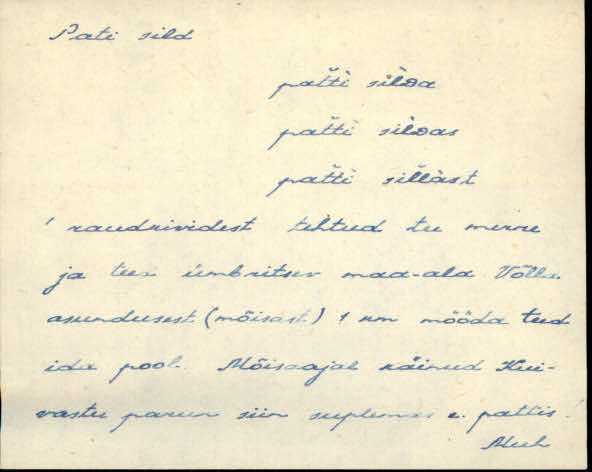 Pati sild
pat̆ti silda
pat̆ti sildas
pat̆ti sillast
' raudkividest tehtud tee merre
ja teda ümbritsev maa-ala Võlla
asundusest (mõisast) 1 km mööda teed
ida pool. Mõisaajal käinud Kui-
vastu parun siin suplemas e. pattis.
Muh